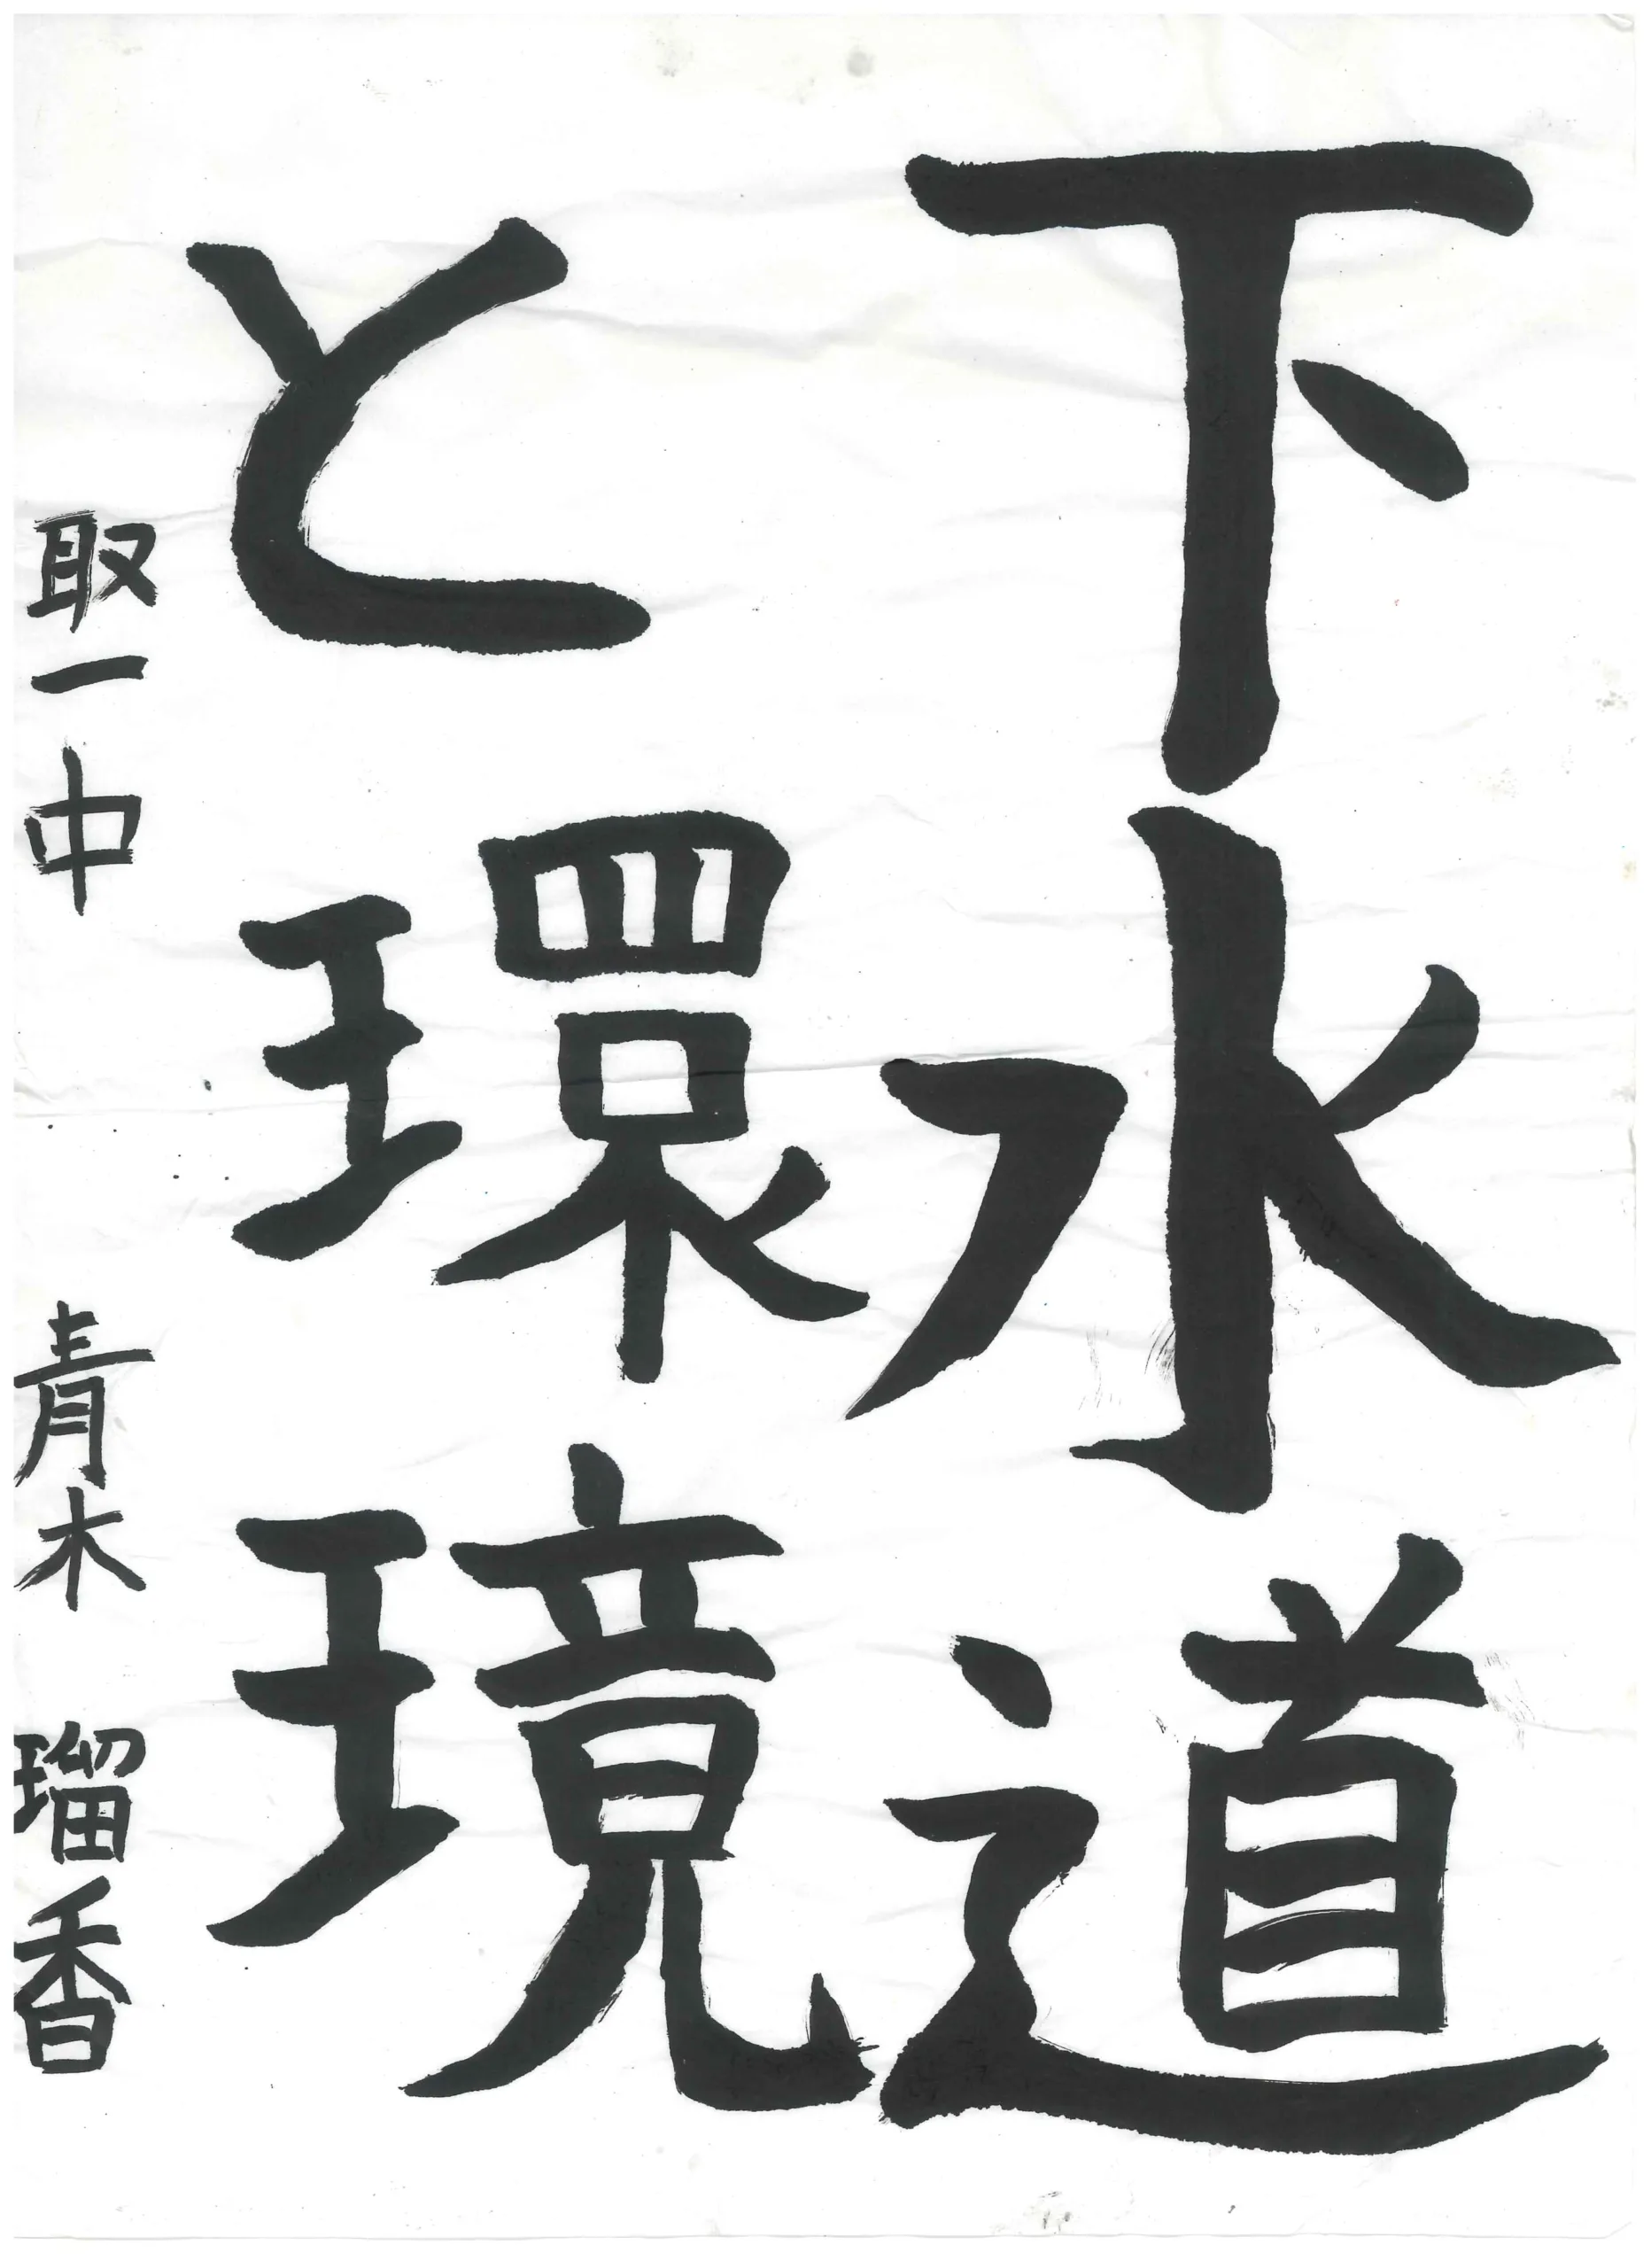 下水道
と環境
取一中 青木 瑠香